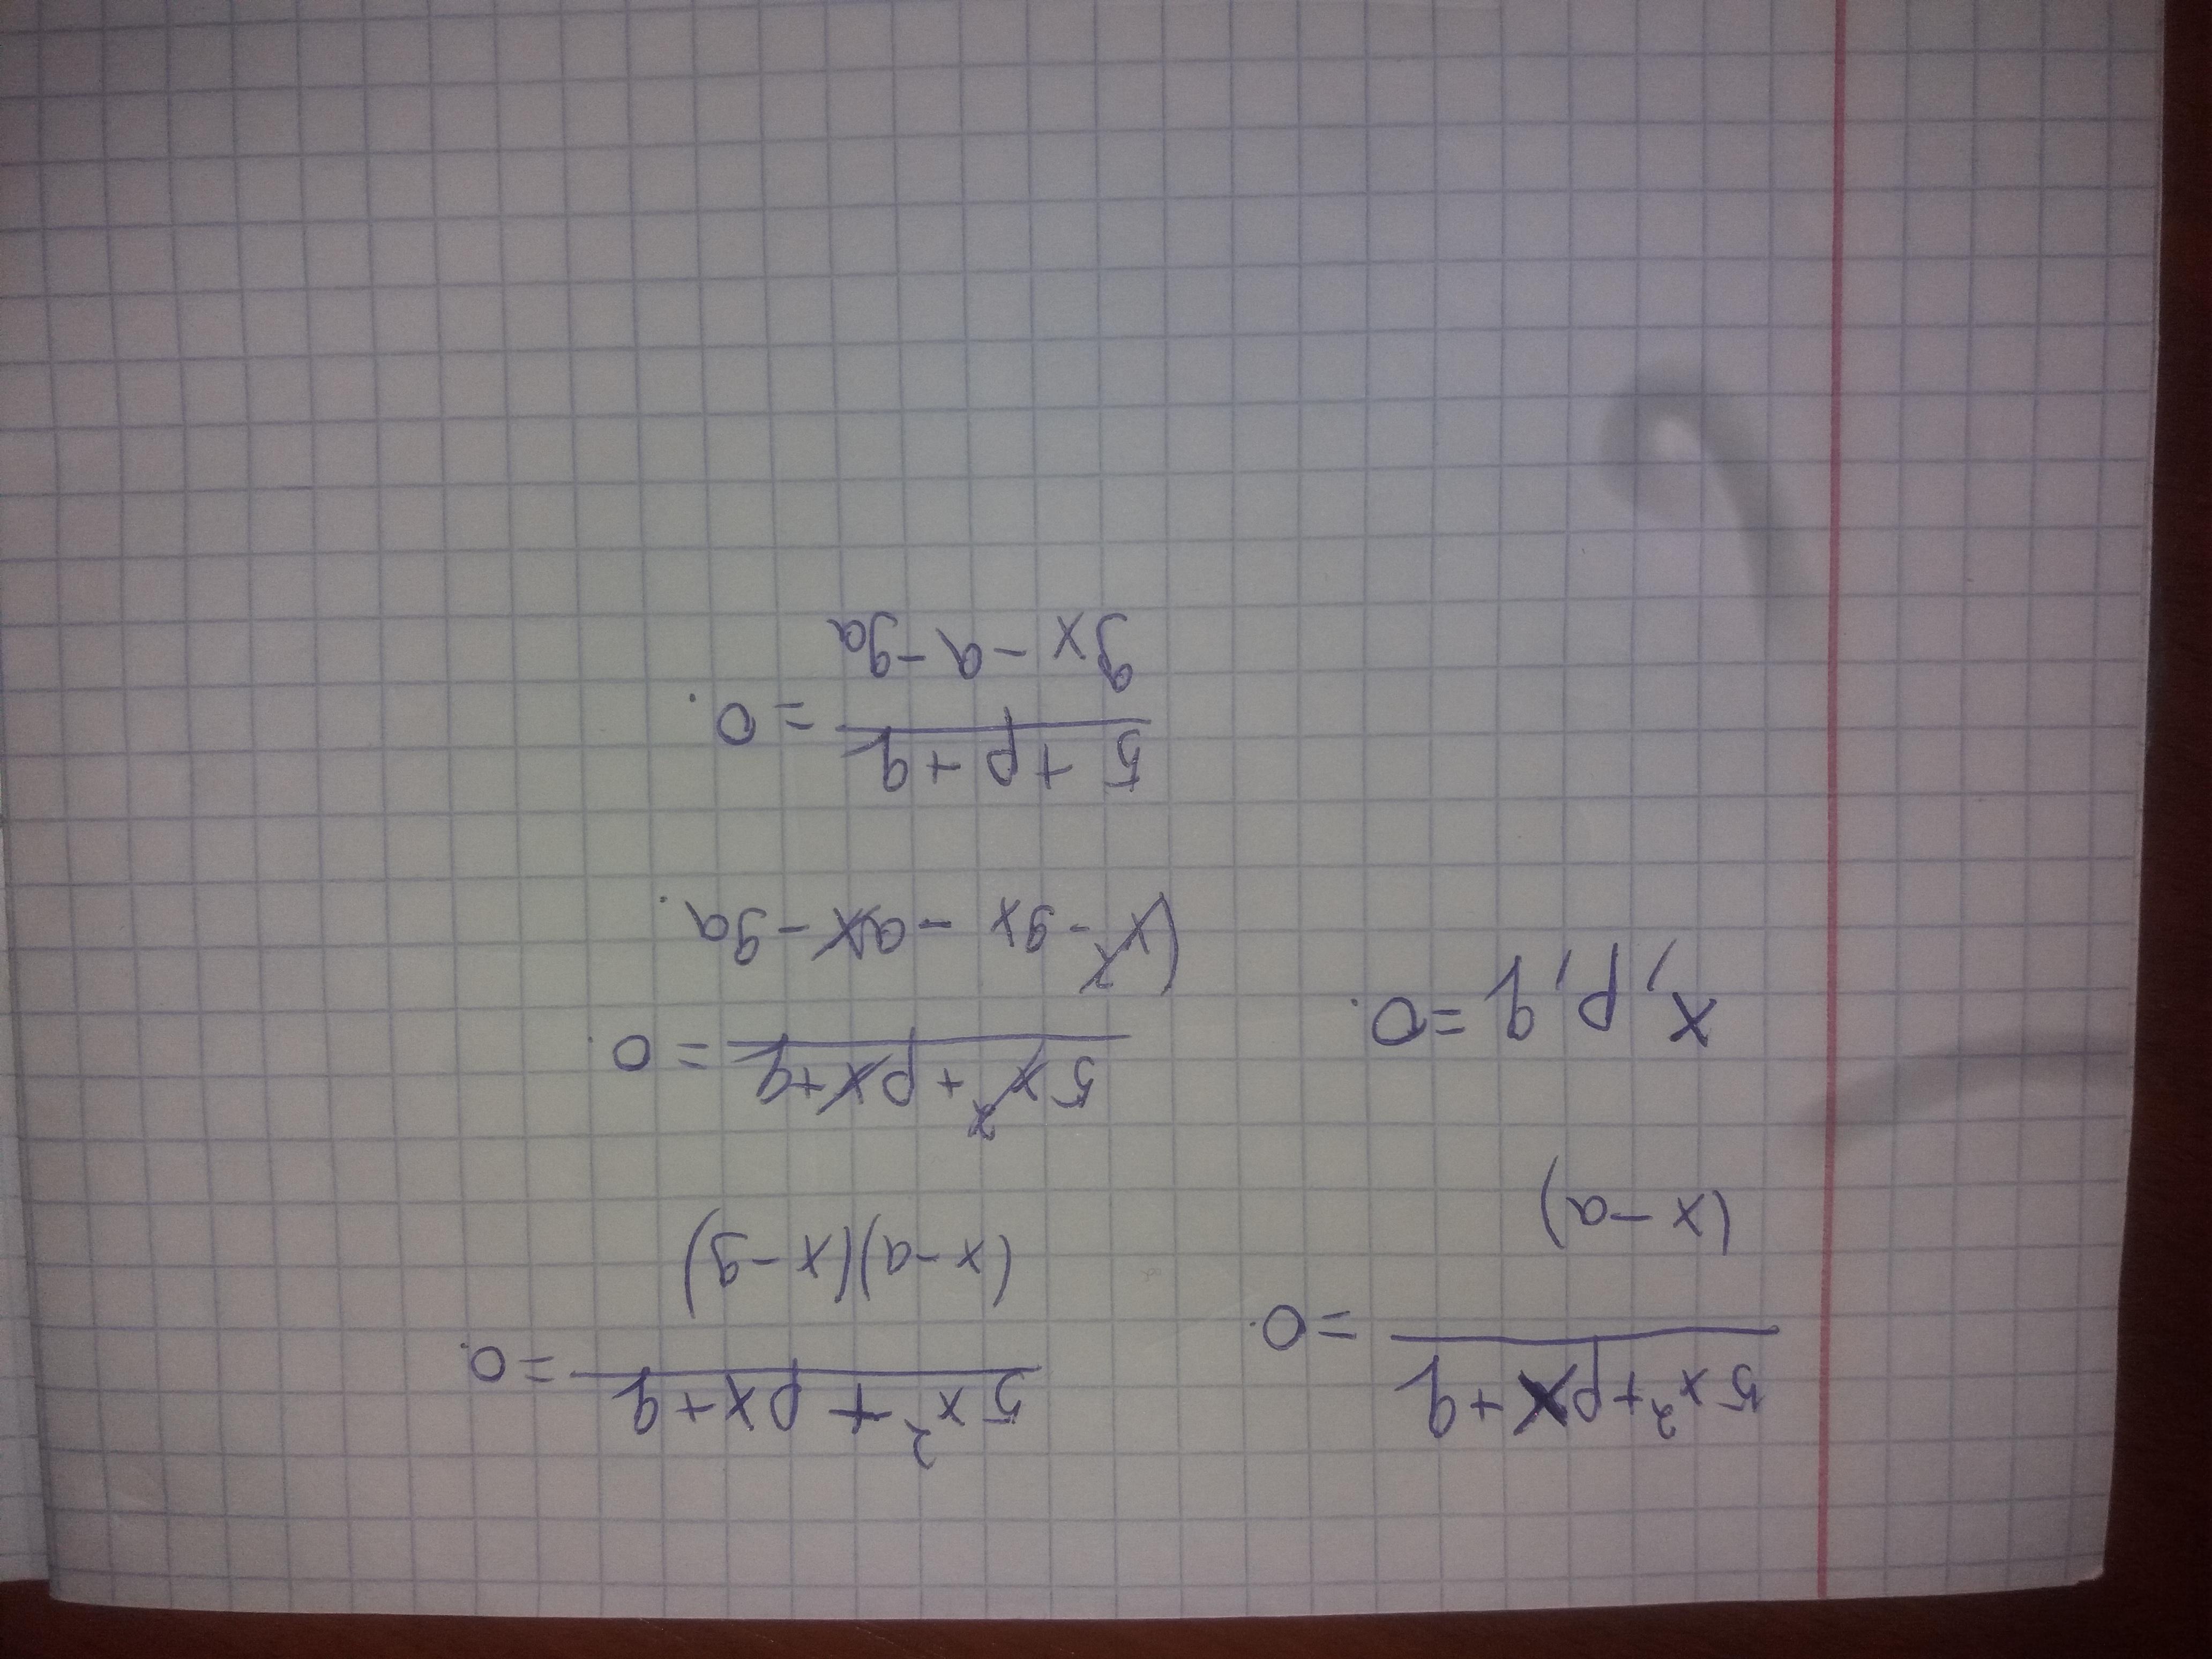 5x² + px + q
(x - a)
= 0.
x, p, q = 0.
5x² + px + q
(x - a)(x - 9)
= 0.
5x² + px + q
(x² - 9x - ax - 9a.
= 0.
5 + p + q
9x - a - 9a
= 0.